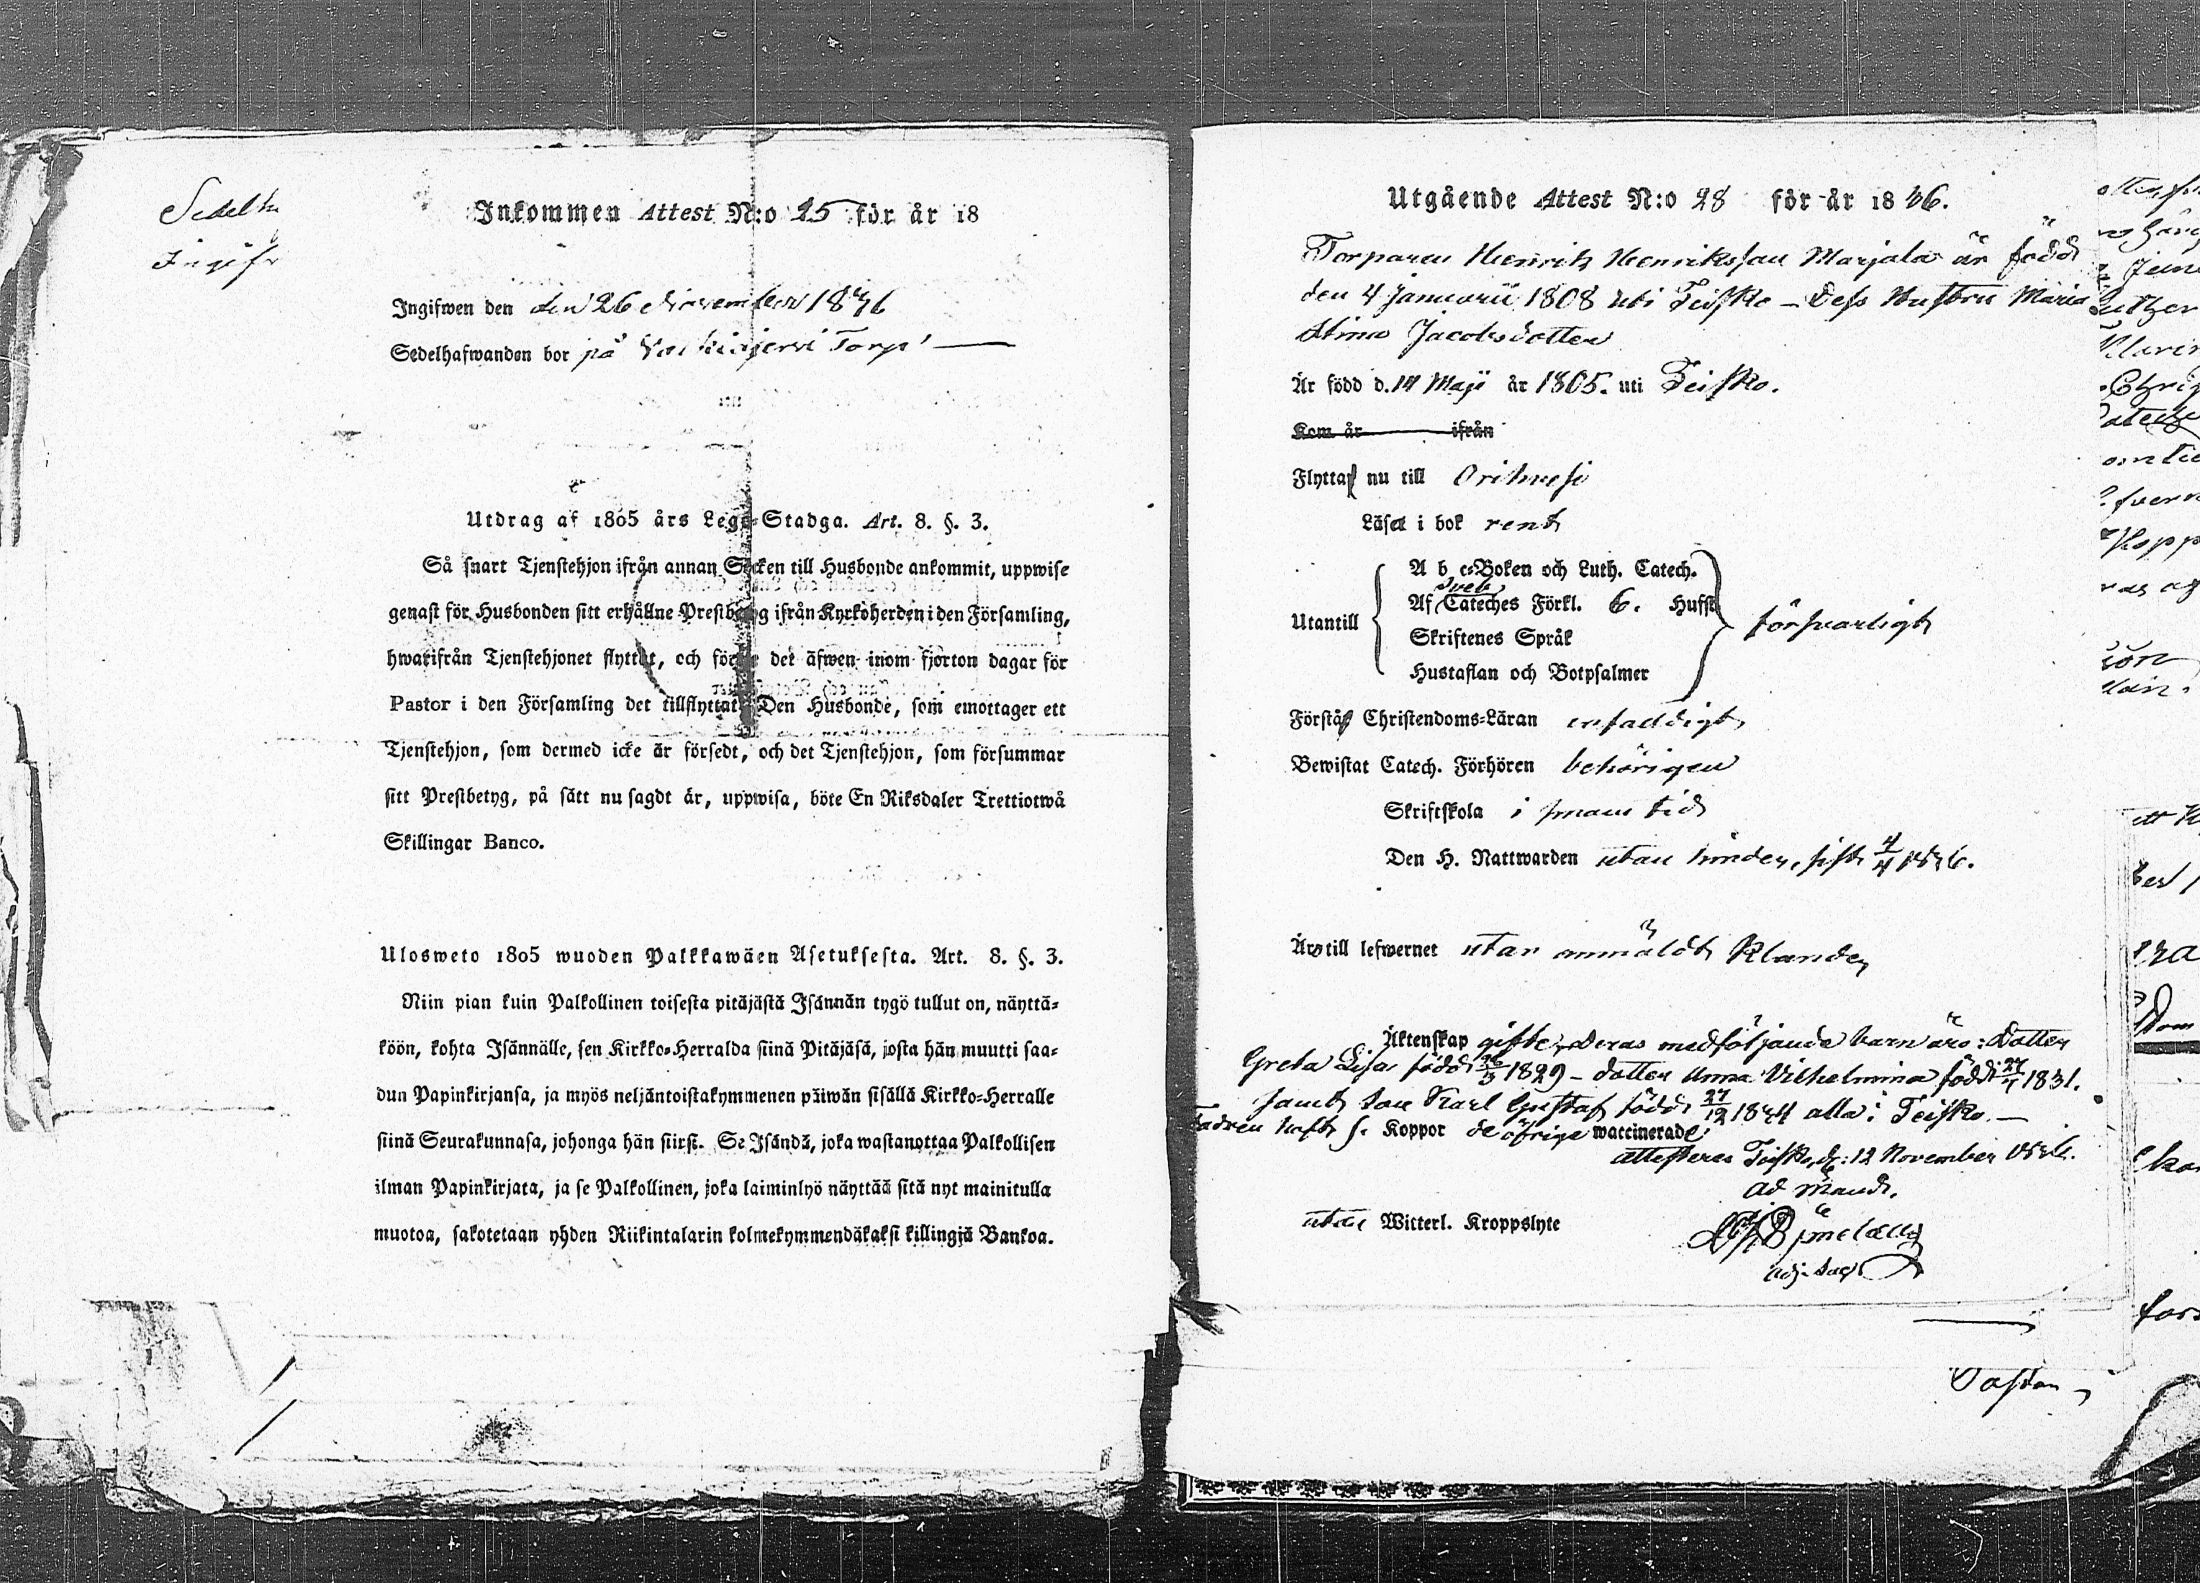 Sedelh
Ingifv
Inkommen Attest N:o 25 för år 18
Ingifwen den den 26 November 1846
Sedelhafwanden bor på Torp
Utdrag af 1805 års Lego-Stadga. Art. 8. §. 3.
Så snart Tjenstehjon ifrån annan Socken till Husbonde ankommit, uppwise
genast för Husbonden sitt erhållne Prestbetyg ifrån Kyrkoherden i den Församling,
hwarifrån Tjenstehjonet flyttat, och förete det äfwen inom fjorton dagar för
Pastor i den Församling det tillflyttat. Den Husbonde, som emottager ett
Tjenstehjon, som dermed icke är försedt, och det Tjenstehjon, som försummar
sitt Prestbetyg, på sätt nu sagdt är, uppwisa, böte En Riksdaler Trettiotwå
Skillingar Banco.
Ulosweto 1805 wuoden Palkkawäen Asetuksesta. Art. 8. §. 3.
Niin pian kuin Palkollinen toisesta pitäjästä Isännän tygö tullut on, näyttä-
köön, kohta Isännälle, sen Kirkko-Herralda siinä Pitäjäsä, josta hän muutti saa-
dun Papinkirjansa, ja myös neljäntoistakymmenen päiwän sisällä Kirkko-Herralle
siinä Seurakunnasa, johonga hän siirsi. Se Isändä, joka wastanottaa Palkollisen
ilman Papinkirjata, ja se Palkollinen, joka laiminlyö näyttää sitä nyt mainitulla
muotoa, sakotetaan yhden Riikintalarin kolmekymmendäkaksi killingiä Bankoa.
Utgående Attest N:o 28 för år 1846.
Torparen Henrik Henriksson Marjala är född
den 4 Januarii 1808 uti Teisko – Dess Hustru Maria
Stina Jacobsdotter
Är född d. 14 Maji år 1805. uti Teisko.
Kom år ifrån
Flyttat nu till Orihvesi
Läser i bok rent
Utantill
A b c-Boken och Luth. Catech.
Af Sveb. Cateches Förkl. 6. Hufst
Skriftenes Språk
Hustaflan och Botpsalmer
försvarligt
Förstår Christendoms-Läran enfaldigt
Bewistat Catech. Förhören behörigen
Skriftskola i sinom tid
Den H. Nattwarden utan hinder, sist 4/4 1846.
Äro till lefwernet utan anmäldt klander
Äktenskap gifte, Deras medföljande barn äro: Dotter
Greta Lisa född 26/3 1829 – dotter Anna Vilhelmina född 27/4 1831.
samt son Karl Gustaf född 27/12 1844 alla i Teisko. –
Fadren haft s. Koppor de öfrige waccinerade
attesteras Teisko, d: 12 November 1846.
ad mand.
utan Witterl. Kroppslyte
adj. sac